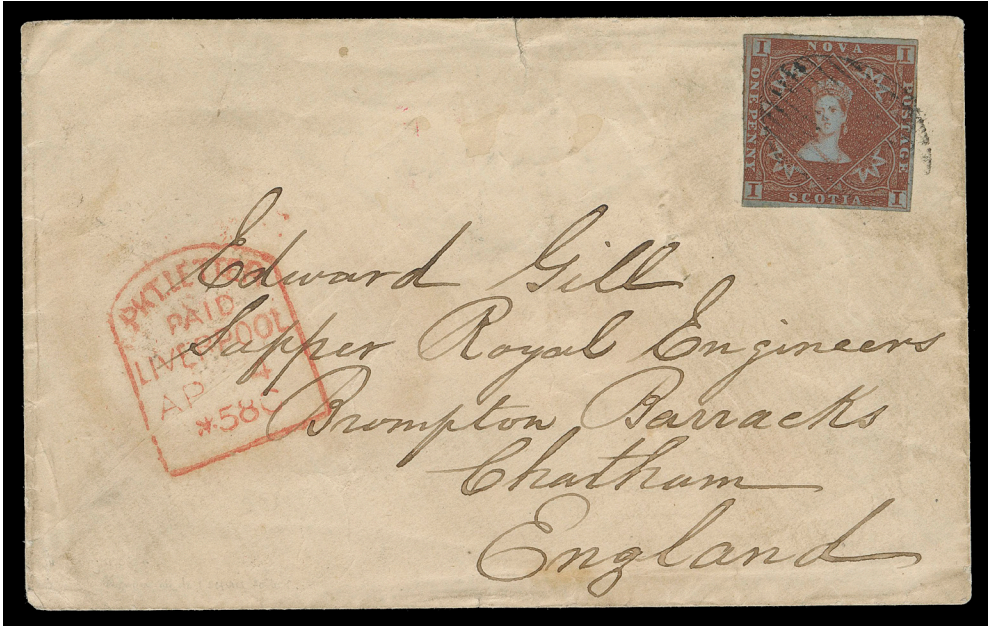 I NOVA I
ONE PENNY
POSTAGE
I SCOTIA I
PKT.LETTER
PAID
LIVERPOOL
AP 4
*58C
Edward Gill
Sapper Royal Engineers
Brompton Barracks
Chatham
England